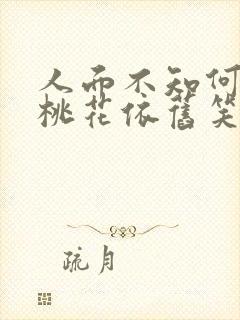 人而不知何
桃花依旧笑
疏月